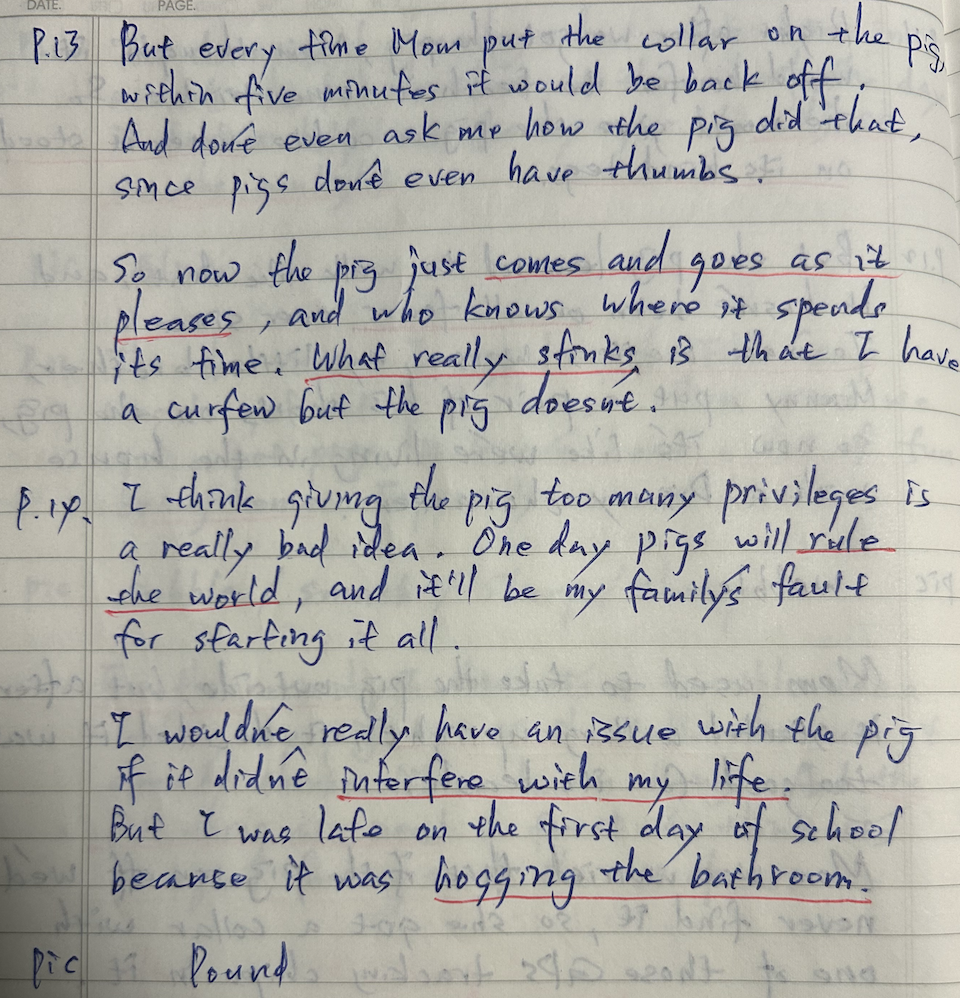 DATE. PAGE.
P.13 But every time Mom put the collar on the pig,
within five minutes it would be back off.
And don't even ask me how the pig did that,
since pigs don't even have thumbs.
So now the pig just comes and goes as it
pleases, and who knows where it spends
its time. What really stinks is that I have
a curfew but the pig doesn't.
P.14. I think giving the pig too many privileges is
a really bad idea. One day pigs will rule
the world, and it'll be my family's fault
for starting it all.
I wouldn't really have an issue with the pig
if it didn't interfere with my life.
But I was late on the first day of school
because it was hogging the bathroom.
pic Pound